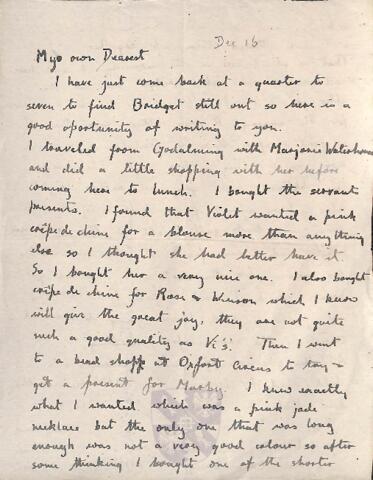 Dec 16
My own Dearest
I have just come back at a quarter to
seven to find Bridget still out so here is a
good oportunity of writing to you.
I traveled from Godalming with Marjorie Waterhouse
and did a little shopping with her before
coming here to lunch. I bought the servants
presents. I found that Violet wanted a pink
crêpe de chine for a blouse more than anything
else so I thought she had better have it
So I bought her a very nice one. I also bought
crêpe de chine for Rose & Winson which I know
will give the great joy, they are not quite
such a good quality as Vi's. Then I went
to a bead shopp at Oxfort Circus to try &
get a present for Murby. I knew exactly
what I wanted which was a pink jade
necklace but the only one that was long
enough was not a very good colour so after
some thinking I bought one of the shorter